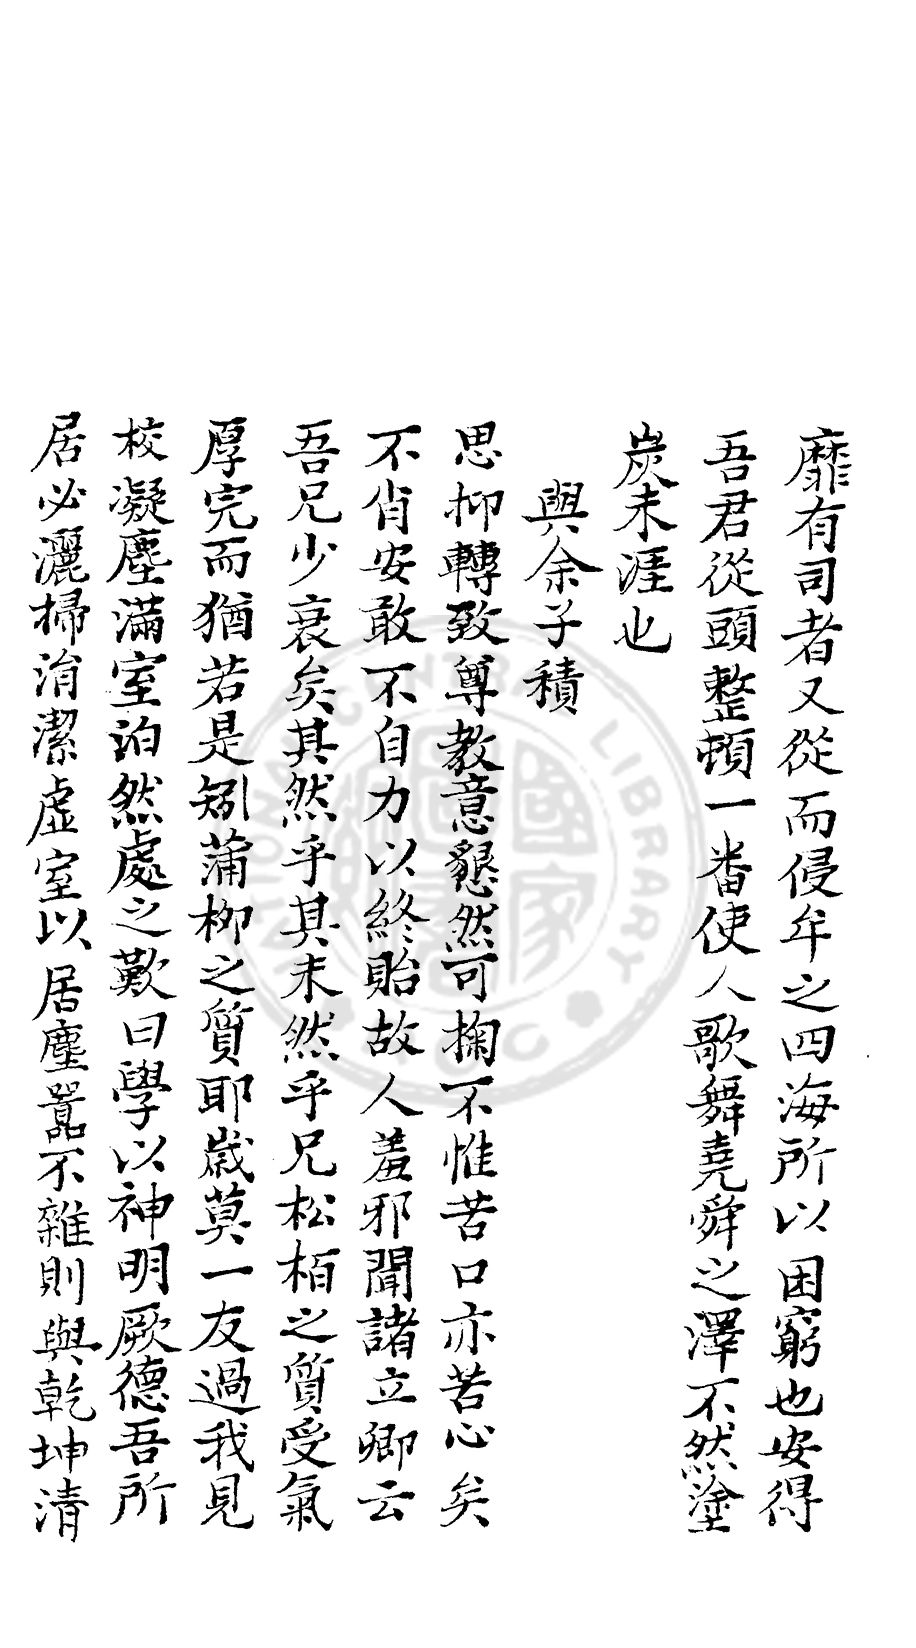 靡有司者又從而侵牟之四海所以困窮也安得
吾君從頭整頓一番使人歌舞堯舜之澤不然塗
炭未涯也
與余子積
思抑轉致尊教意懇然可掬不惟苦口亦苦心矣
不肖安敢不自力以終貽故人羞邪聞諸立卿云
吾兄少衰矣其然乎其未然乎兄松栢之質受氣
厚完而猶若是矧蒲柳之質耶歲莫一友過我見
校凝塵滿室泊然處之歎曰學以神明厥德吾所
居必灑掃涓潔虛室以居塵囂不雜則與乾坤清
NATIONAL CENTRAL LIBRARY
國家圖書館